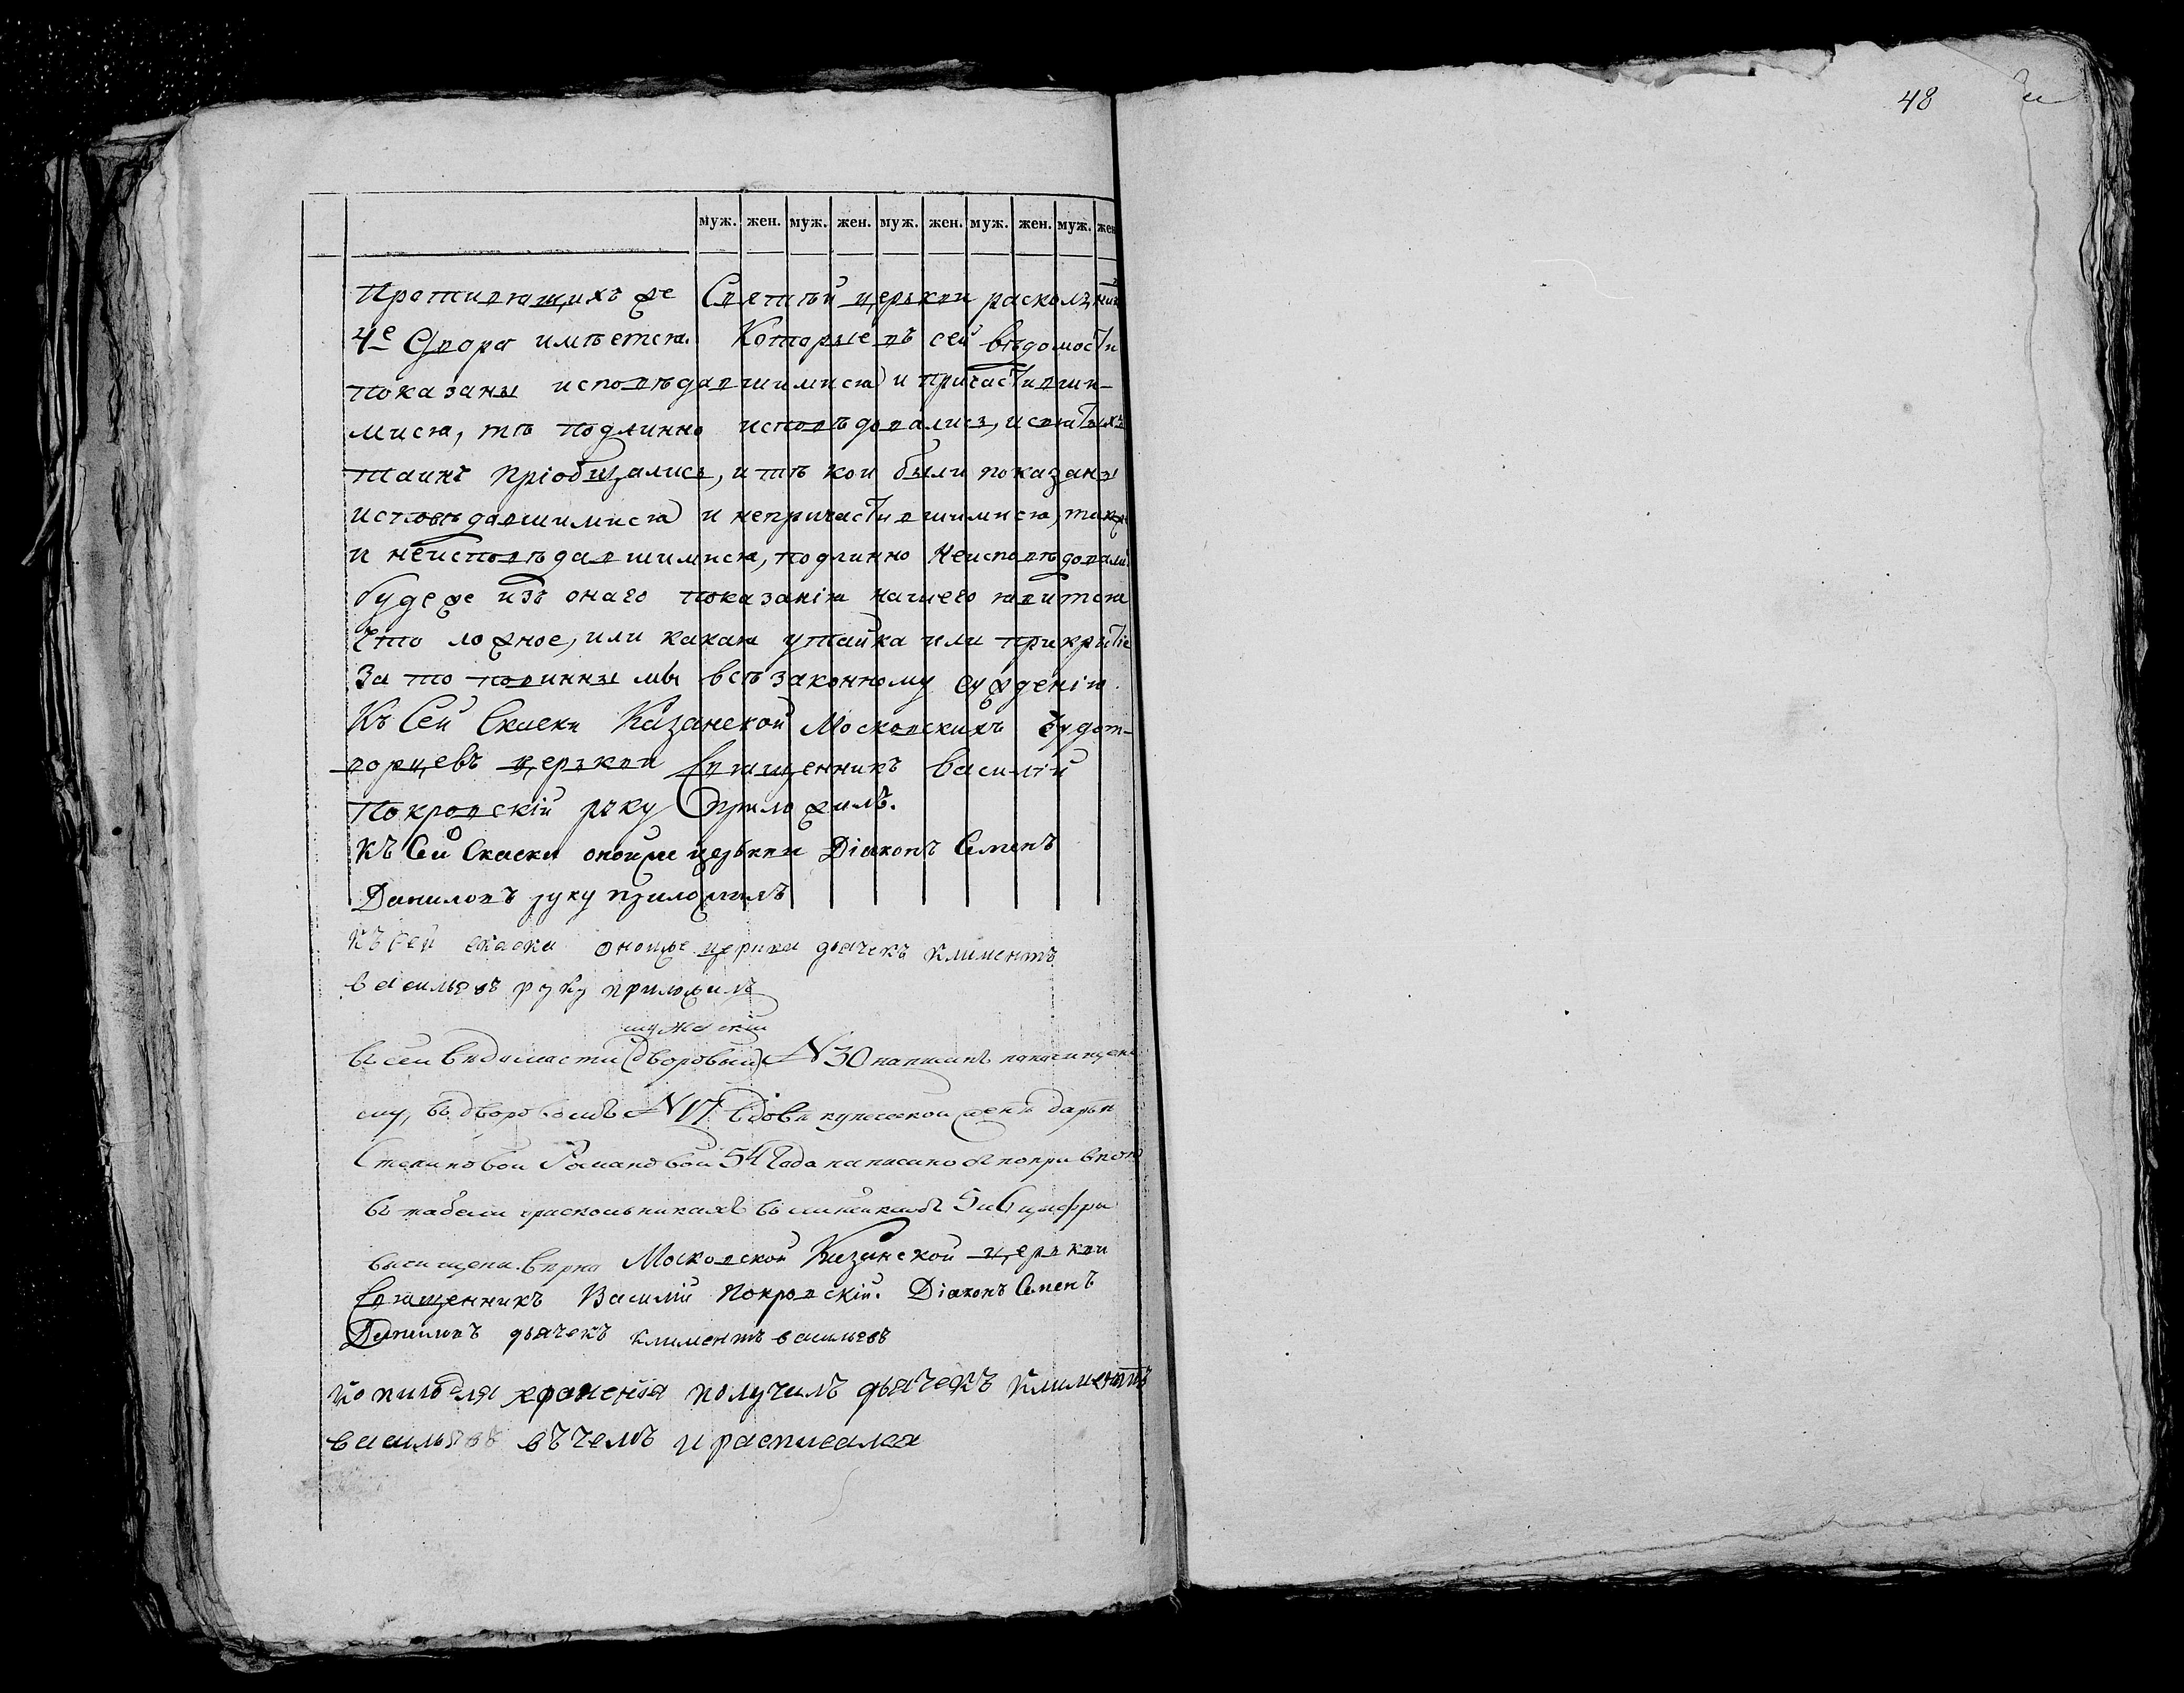 48
муж. жен. муж. жен. муж. жен. муж. жен. муж. жен
Противящихъ же Святѣй церькви расколн
4е Двора имѣется. Которые въ сей вѣдомости
показаны исповѣдавшимися и причастивши-
мися, тѣ подлинно исповѣдовались, и святыхъ
таинъ пріобщались, и тѣ кои были показаны
исповѣдавшимися и непричастившимися, также
и неисповѣдавшимися, подлинно неисповѣдовали
будеже изъ онаго показанія нашего явится
Что ложное, или какая утайка или прикрытіе
За то повинны мы всѣ законному сужденію.
Къ Сей Скаски Казанской Московскихъ Чудот-
ворцевъ церькви Священникъ Василій
Покровскій руку приложилъ.
Къ Сей Скаски онойже церькви Діаконъ Семенъ
Даниловъ руку приложилъ
Къ сей скаски онойже церкви дьячекъ Климентъ
васильевъ руку приложилъ
мужескій
Въ сей ведомости (дворовый) № 30 написанъ
ему, въ дворовомъ № 17 вдовы купеческой жены дарьи
Степановой Романовой 54 года написано
въ табели раскольникахъ въ 5 и 6 цифры
вычищены. верно Московской Казанской церькви
Священникъ Василій Покровскій. Діаконъ Семенъ
Даниловъ дьячекъ климентъ васильевъ
копию для хранения получилъ дьячекъ климентъ
васильевъ въ чемъ и расписался